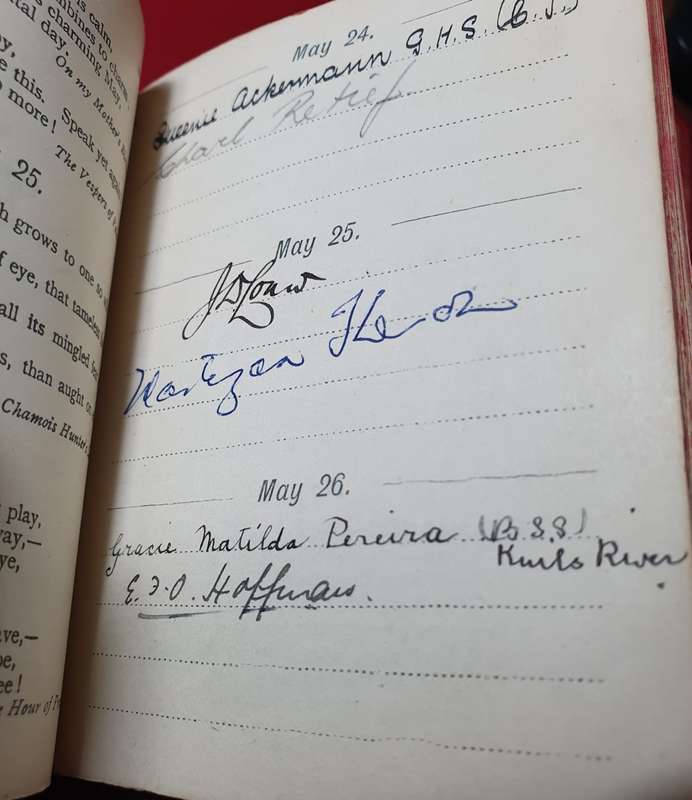 is calm,
mbines to charm
s charming May,
tal day.
On my Mother's
by,
e this. Speak yet again
o more!
The Vespers of
25.
h grows to one so
f eye, that tameless
all its mingled
s, than aught on
Chamois Hunter's
play,
way,—
ye,
ave,—
be,
ee!
Hour of
May 24.
Queenie Ackermann G.H.S.
Charl Retief.
May 25.
J D Louw
May 26.
Gracie Matilda Pereira (B.S.S)
Kuils River
E. J. O. Hoffman.